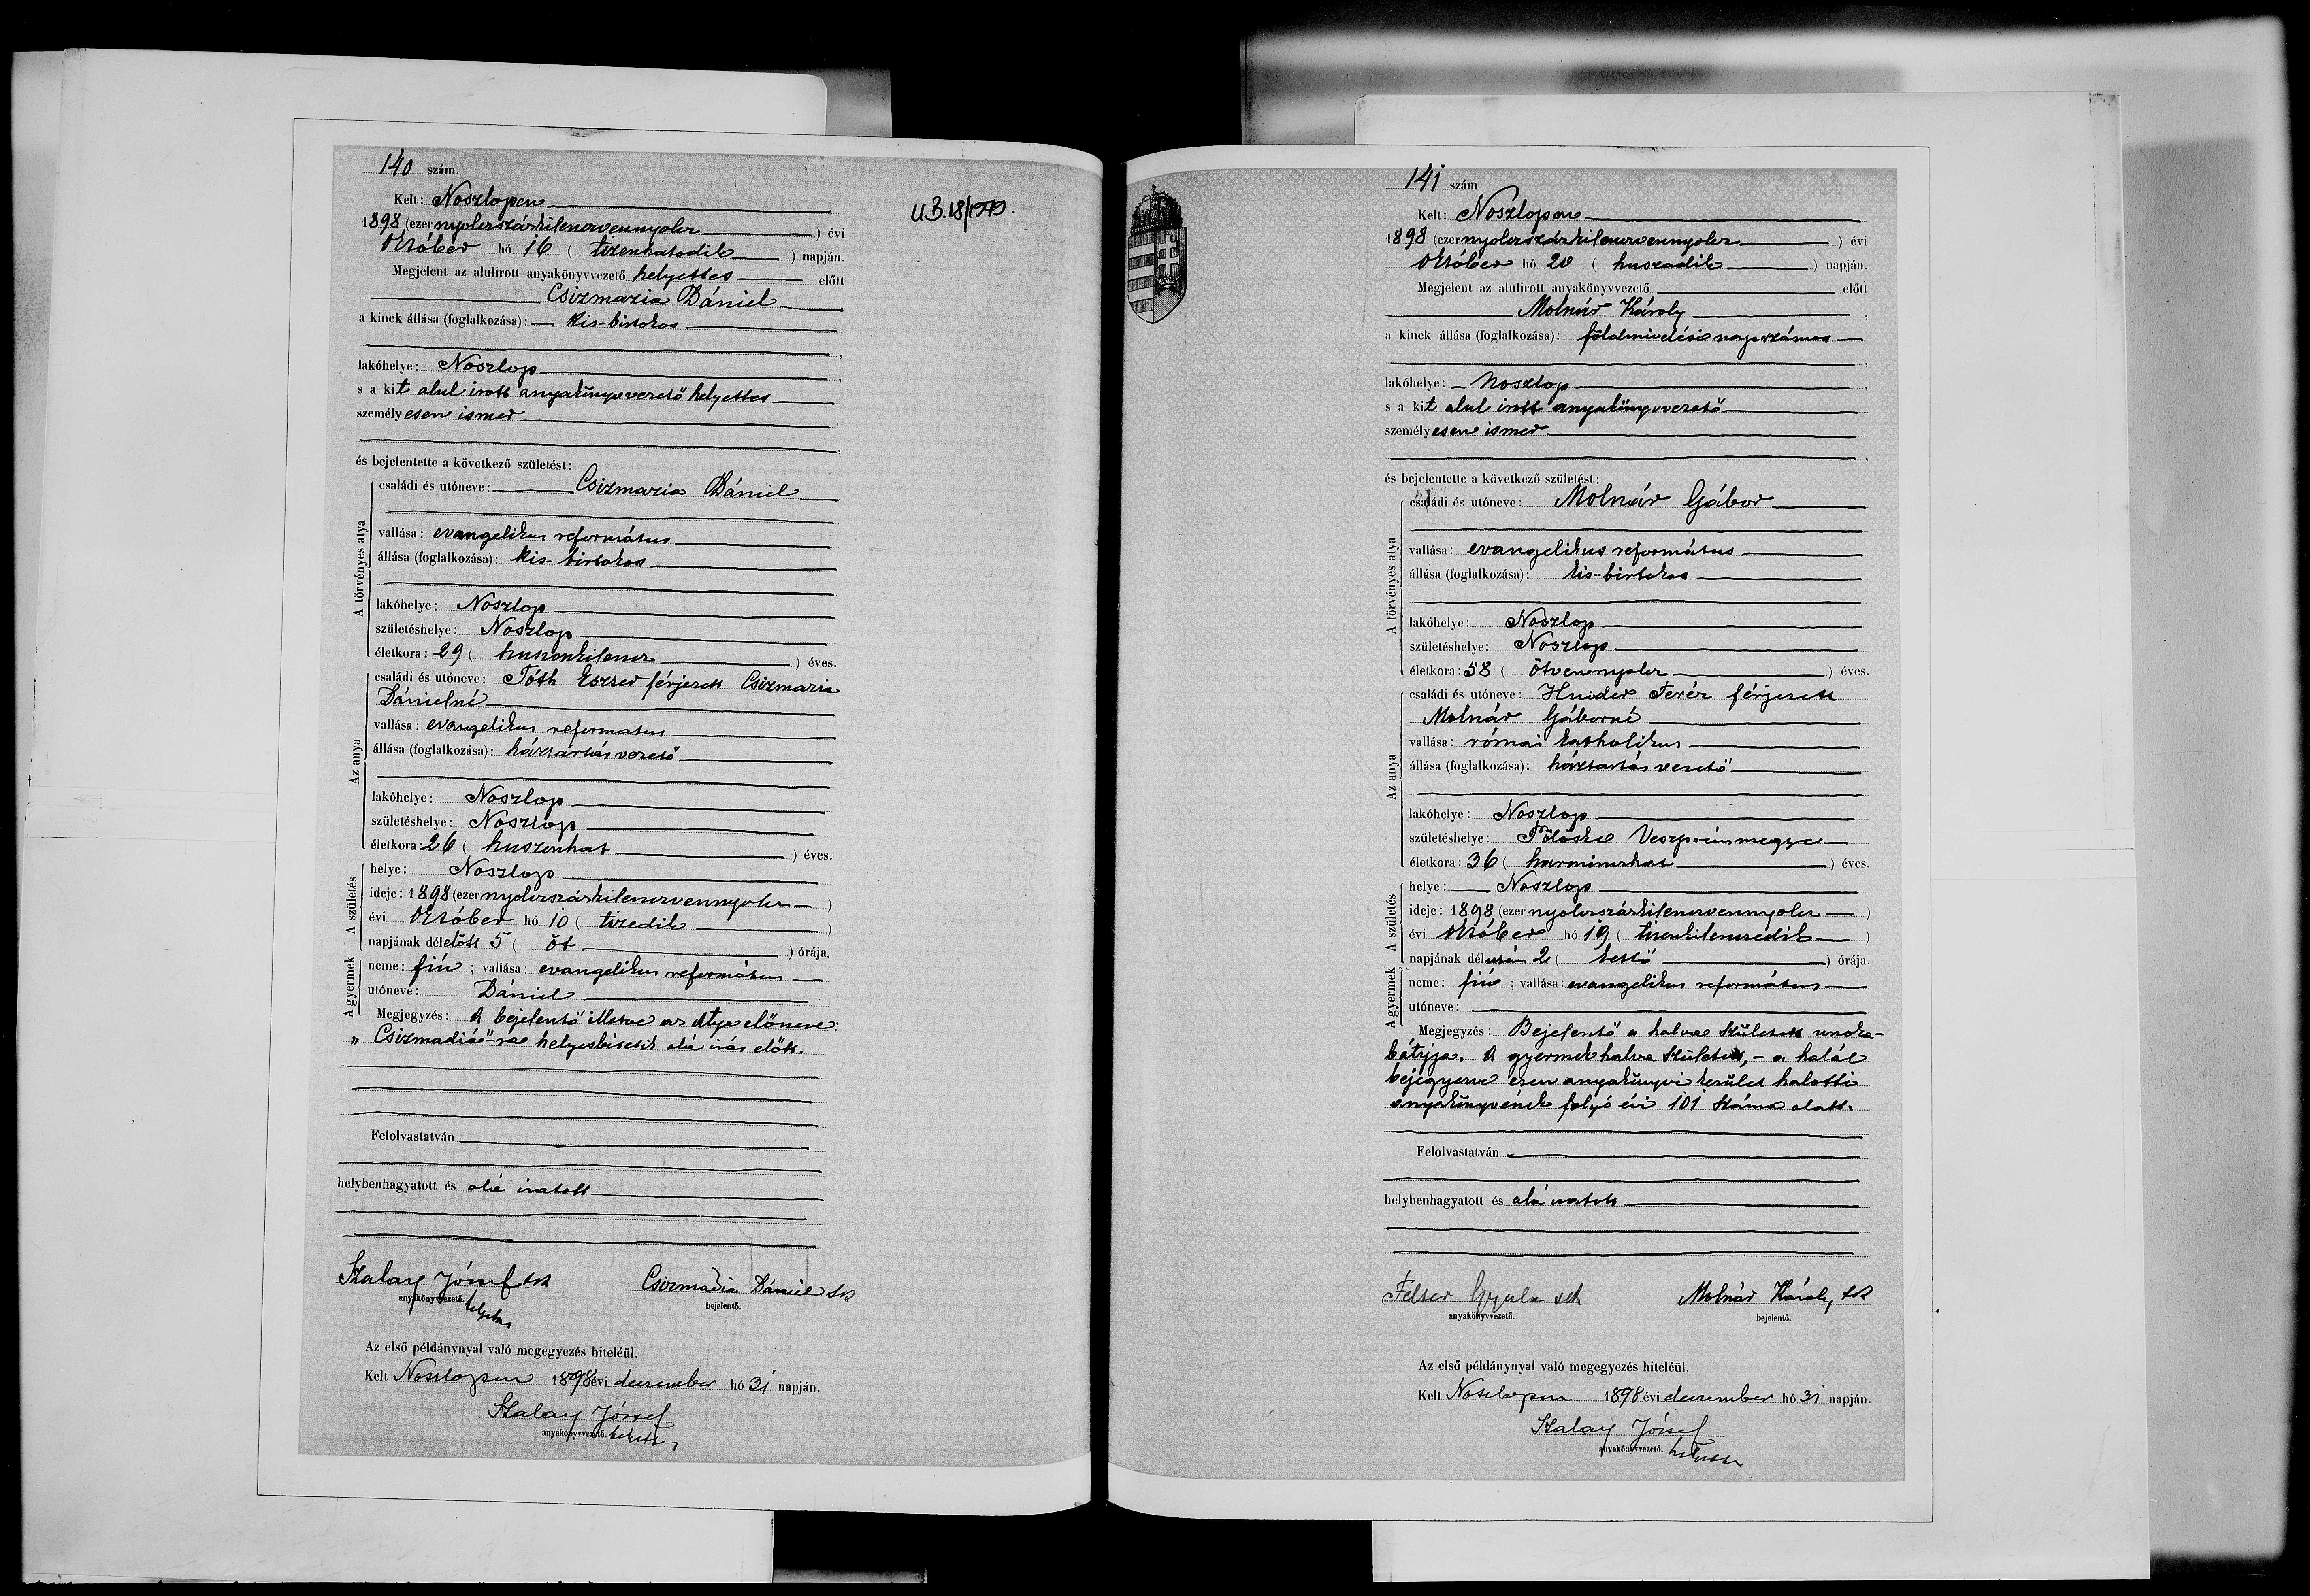 140 szám.
Kelt: Noszlopon
1898 (ezernyolcszázkilencvennyolc) évi
Október hó 16 (tizenhatodik) napján.
Megjelent az alulirott anyakönyvvezető helyettes előtt
Csizmazia Dániel,
a kinek állása (foglalkozása): kis-birtokos
lakóhelye: Noszlop,
s a kit alul irott anyakönyvvezető helyettes
személyesen ismer,
és bejelentette a következő születést:
A törvényes atya
családi és utóneve: Csizmazia Dániel
vallása: evangelikus református
állása (foglalkozása): kis-birtokos
lakóhelye: Noszlop
születéshelye: Noszlop
életkora: 29 (huszonkilenc) éves.
Az anya
családi és utóneve: Tóth Eszter férjezett Csizmazia
Dánielné
vallása: evangelikus reformatus
állása (foglalkozása): háztartásvezető
lakóhelye: Noszlop
születéshelye: Noszlop
életkora: 26 (huszonhat) éves.
A születés
helye: Noszlop
ideje: 1898 (ezernyolcszázkilencvennyolc)
évi Október hó 10 (tizedik)
napjának délelőtt 5 (öt) órája.
A gyermek
neme: fiú; vallása: evangelikus református
utóneve: Dániel
Megjegyzés: A bejelentő illetve az atya előneve:
„Csizmadiá"-ra helyesbítetik alá írás előtt.
Felolvastatván
helybenhagyatott és alá iratott
Szalay József sk
anyakönyvvezető.
helyettes
Csizmadia Dániel sk
bejelentő.
Az első példánynyal való megegyezés hiteléül.
Kelt Noszlopon 1898 évi december hó 31 napján.
Szalay József
anyakönyvvezető. helyettes
U.B.18/1919.
141 szám
Kelt: Noszlopon
1898 (ezernyolcszázkilencvennyolc) évi
Október hó 20 (huszadik) napján.
Megjelent az alulirott anyakönyvvezető előtt
Molnár Károly,
a kinek állása (foglalkozása): földmivelési napszámos,
lakóhelye: Noszlop,
s a kit alul irott anyakönyvvezető
személyesen ismer,
és bejelentette a következő születést:
A törvényes atya
családi és utóneve: Molnár Gábor
vallása: evangelikus református
állása (foglalkozása): kis-birtokos
lakóhelye: Noszlop
születéshelye: Noszlop
életkora: 58 (ötvennyolc) éves.
Az anya
családi és utóneve: Teréz férjezett
Molnár Gáborné
vallása: római katholikus
állása (foglalkozása): háztartásvezető
lakóhelye: Noszlop
születéshelye: Veszprémmegye
életkora: 36 (harminczhat) éves.
A születés
helye: Noszlop
ideje: 1898 (ezernyolcszázkilencvennyolc)
évi Október hó 19 (tizenkilenczedik)
napjának délután 2 (kettő) órája.
A gyermek
neme: fiú; vallása: evangelikus református
utóneve:
Megjegyzés: Bejelentő a halva született unoka-
bátyja. A gyermek halva született, - a halál
bejegyezve ezen anyakönyvi kerület halotti
anyakönyvének folyó évi 101 száma alatt.
Felolvastatván
helybenhagyatott és alá iratott
Gyula sk
anyakönyvvezető.
Molnár Károly sk
bejelentő.
Az első példánynyal való megegyezés hiteléül.
Kelt Noszlopon 1898 évi december hó 31 napján.
Szalay József
anyakönyvvezető. helyettes